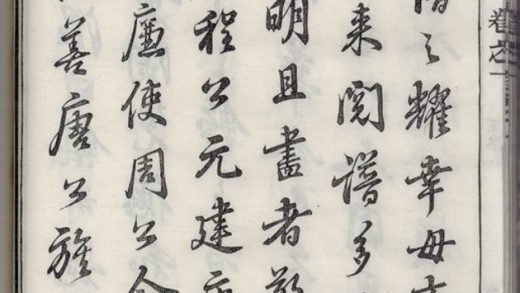 卷之
之耀幸毋
来閱譜多
明且盡者
程公元建
廉使周公
善唐公族